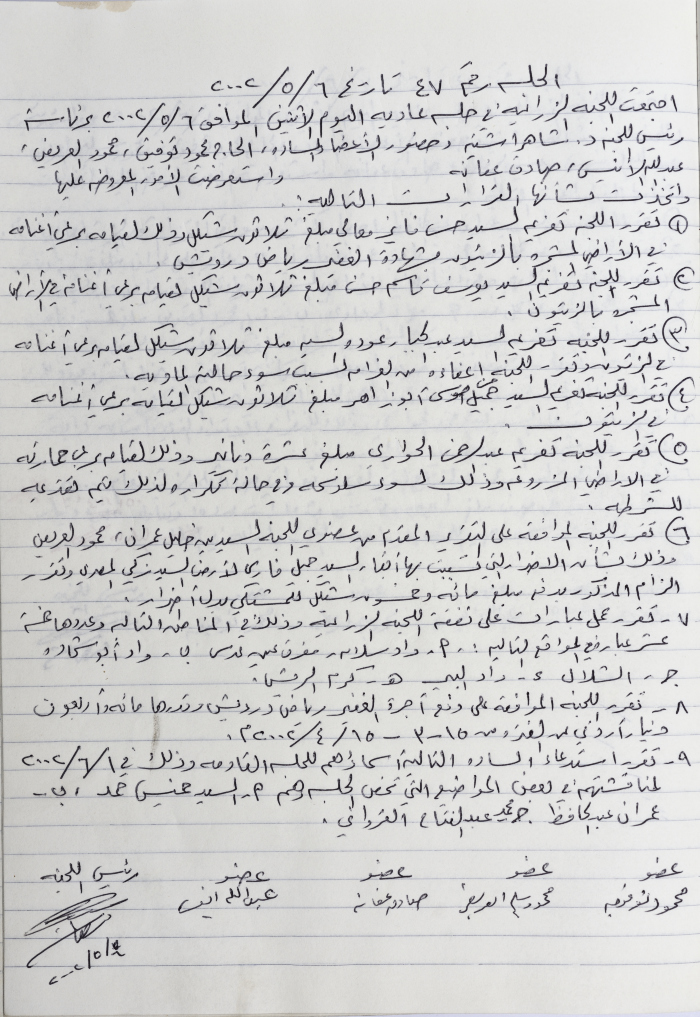 الجلسه رقم ٤٧ تاريخ ٦/٥/٢٠٠٢
اجتمعت اللجنه الزراعيه في جلسه عاديه اليوم الاثنين الموافق ٦/٥/٢٠٠٢ برئاسة
رئيس اللجنه د. شاهر اشتيه وحضور الأعضاء الساده، الحاج محمود توفيق، محمود العريض،
عبدالله انيس، صادق عفانه واستعرضت الأمور المعروضه عليها
واتخذت بشأنها القرارات التاليه:
① تقرر اللجنه تغريم السيد حسن فايز معالي مبلغ ثلاثون شيكل وذلك لقيامه برعي أغنامه
في الأراضي المشجره بالزيتون بشهادة الغفير رياض درويش.
② تقرر اللجنه تغريم السيد يوسف قاسم حسن مبلغ ثلاثون شيكل لقيامه برعي أغنامه في الأراضي
المشجره بالزيتون.
③ تقرر اللجنه تغريم السيد عبد الجبار عوده السيه مبلغ ثلاثون شيكل لقيامه برعي أغنامه
في الزيتون وتقرر اللجنه اعفاءه من الغرامه لسبب سوء حالته الماديه.
④ تقرر اللجنه تغريم السيد جميل موسى أبوزاهر مبلغ ثلاثون شيكل لقيامه برعي أغنامه
في الزيتون.
⑤ تقرر اللجنه تغريم عبدالرحمن الحواري مبلغ عشرة دنانير وذلك لقيامه برعي حمارته
في الاراضي المزروعه وذلك لسوء سلوكه وفي حالة تكراره لذلك يتم تقديمه
للشرطه.
⑥ تقرر اللجنه الموافقه على التقرير المقدم من عضوي اللجنه السيدين خليل عمران، محمود العريض
وذلك بشأن الاضرار التي تسببت بها أغنام السيد جميل فايز لأرض السيد زكي المصري وتقرر
الزام المذكور بدفع مبلغ مائه وخمسون شيكل للمشتكي بدل أضرار.
٧- تقرر عمل عبارات على نفقة اللجنه الزراعيه وذلك في المناطق التاليه وعددها خمسة
عشر عباره في المواقع التاليه: أ- واد سلامه، مفرق عين عدس ب- واد أبو شحاده
جـ- الشلال د- واد البير هـ- كروم الريش.
٨- تقرر اللجنه الموافقه على دفع أجرة الغفير رياض درويش وقدرها مائه وأربعون
دينار أردني عن الفتره من ١٥-٣-١٥/٤/٢٠٠٢م.
٩- تقرر استدعاء الساده التاليه أسماؤهم للجلسه القادمه وذلك في ١/٦/٢٠٠٢
لمناقشتهم في بعض المواضيع التي تخص الجلسه وهم أ- السيد خميس حمد، ب-
عمران عبدالحافظ جـ- محمد عبدالفتاح القرواني.
عضو عضو عضو عضو رئيس اللجنه
محمود توفيق محمود سليم العريض صادق عفانه عبدالله انيس